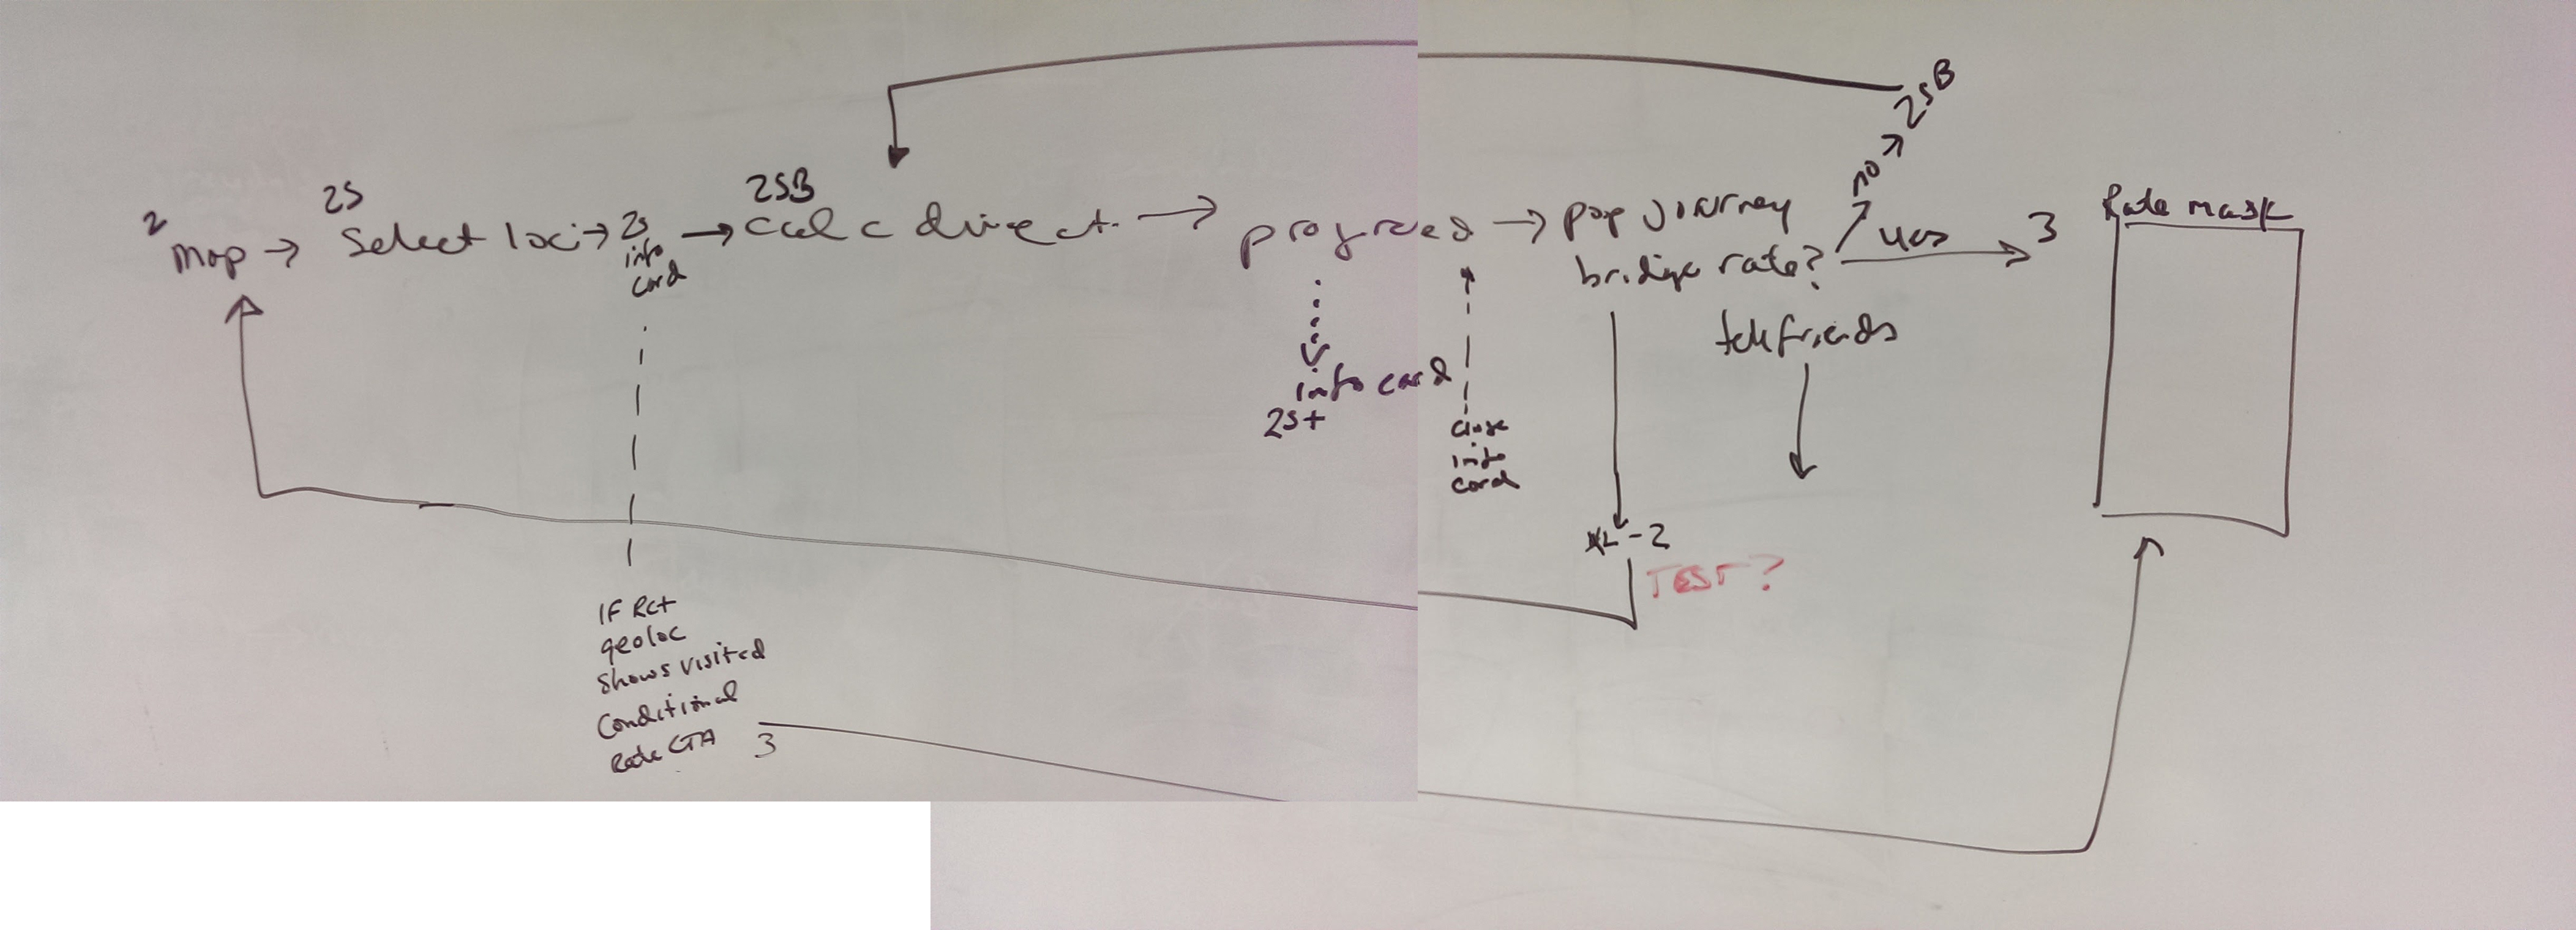 2
Map →
2S
Select loc →
2s
info
card
→
2SB
Calc direct. →
progress →
pop journey
bridge rate?
no → 2SB
yes → 3
Rate mask
tell friends
info card
2S+
close
info
card
XL-2
TEST?
IF Rct
geoloc
shows visited
Conditional
Rate CTA 3